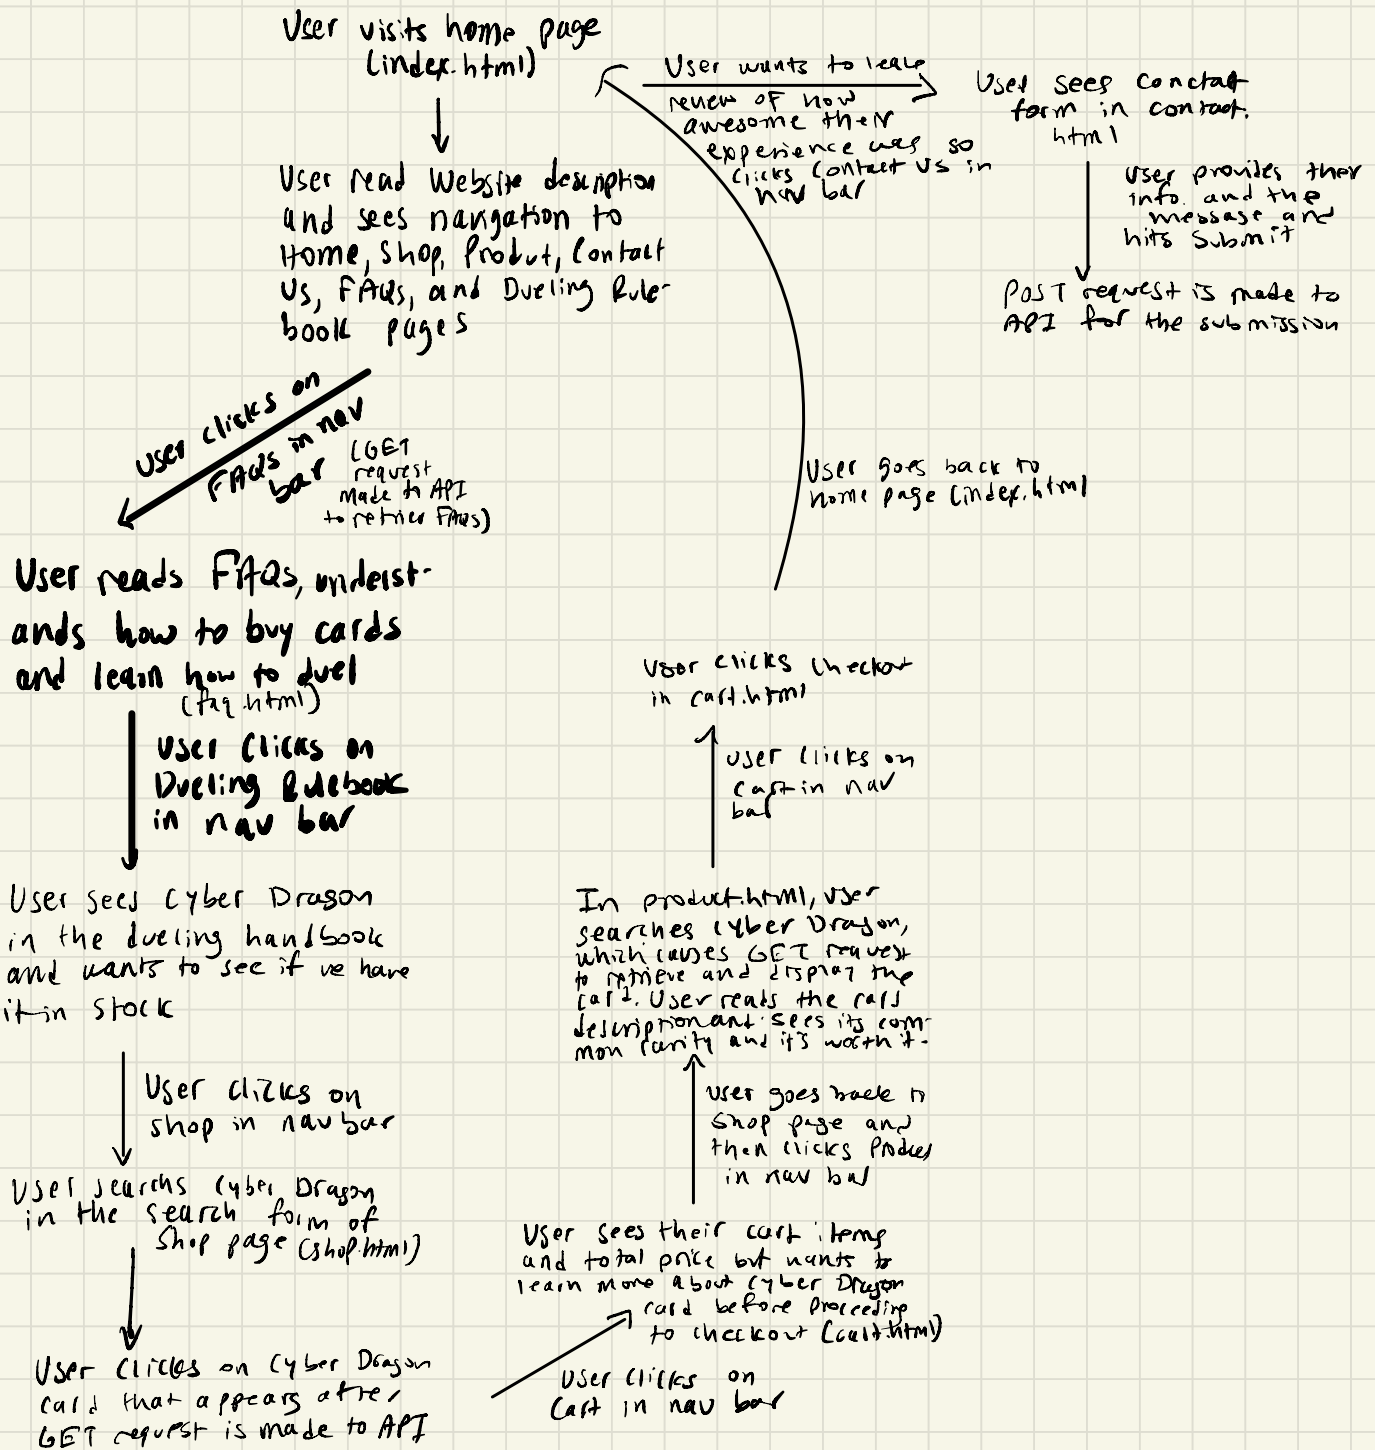 User visits home page
(index.html)
User read Website description
and sees navigation to
Home, Shop, Produt, Contact
Us, FAQs, and Dueling Rule-
book pages
User clicks on
FAQs in nav
bar
(GET
request
made to API
to retriev FAQs)
User reads FAQs, underst-
ands how to buy cards
and learn how to duel
(faq.html)
User Clicks on
Dueling Rulebook
in nav bar
User sees Cyber Dragon
in the dueling handbook
and wants to see if we have
it in stock
User clicks on
shop in nav bar
User searchs Cyber Dragon
in the search form of
Shop page (shop.html)
User clicks on Cyber Dragon
card that appears after
GET request is made to API
User clicks on
Cart in nav bar
User sees their cart items
and total price but wants to
learn more about Cyber Dragon
card before proceeding
to checkout (cart.html)
User goes back to
Shop page and
then clicks Product
in nav bar
In product.html, user
searches Cyber Dragon,
which causes GET request
to retrieve and display the
card. User reads the card
description and sees its com-
mon rarity and it's worth it.
User clicks on
Cart in nav
bar
User clicks checkout
in cart.html
User goes back to
home page (index.html
User wants to leave
review of how
awesome their
experience was so
clicks Contact Us in
nav bar
User sees conctat
form in contact.
html
User provides their
info. and the
message and
hits Submit
POST request is made to
API for the submission